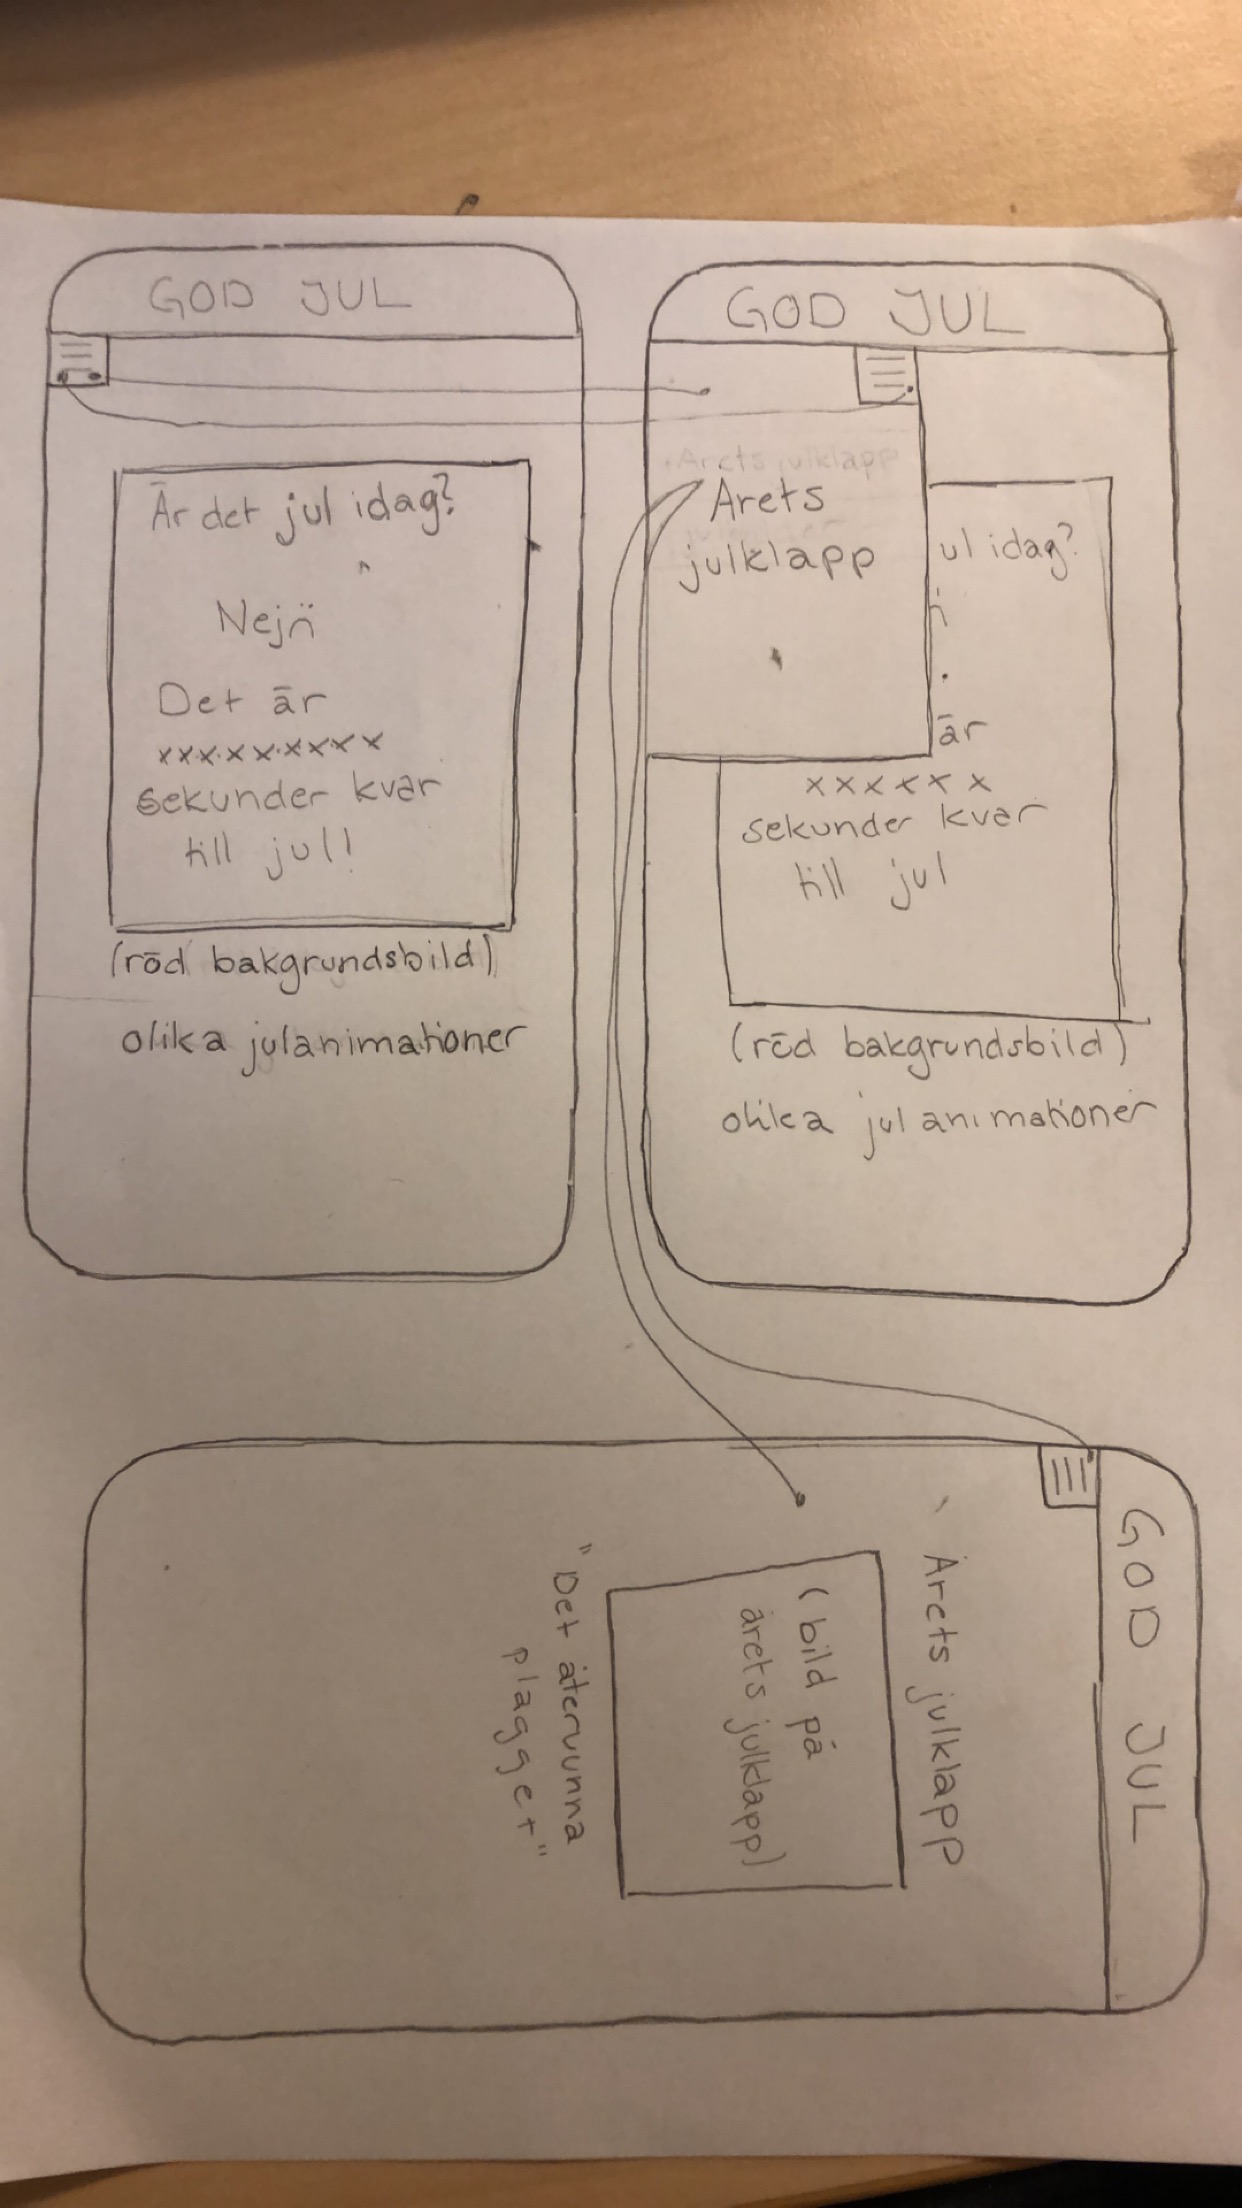 GOD JUL
Är det jul idag?
Nej
Det är
xxxxxxxxx
sekunder kvar
till jul!
(röd bakgrundsbild)
olika julanimationer
GOD JUL
Årets julklapp
Årets
julklapp
ul idag?
är
xxxxxx
sekunder kvar
till jul
(röd bakgrundsbild)
olika julanimationer
GOD JUL
Årets julklapp
(bild på
årets julklapp)
"Det återvunna
plagget"